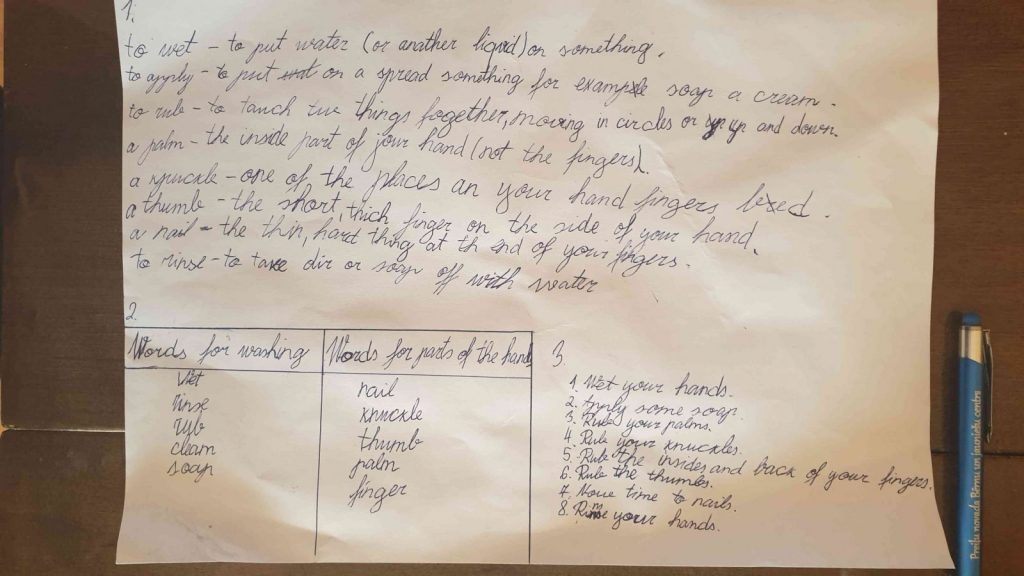 1.
to wet – to put water (or anather liquid) on something.
to apply – to put on a spread something for example soap a cream.
to rule – to tauch two things together, moving in circles or up and down.
a palm – the inside part of your hand (not the fingers).
a knuckle – one of the places an your hand fingers bed.
a thumb – the short, thick finger on the side of your hand.
a nail – the thin, hard thing at th end of your fingers.
to rinse – to take dir or soap off with water
2.
Words for washing
Words for parts of the hand
Wet
rinse
rub
clean
soap
nail
knuckle
thumb
palm
finger
3
1. Wet your hands.
2. Apply some soap.
3. Rule your palms.
4. Rule your knuckles.
5. Rule the insides and back of your fingers.
6. Rule the thumbs.
7. Move time to nails.
8. Rinse your hands.
Profu naroda Bērnu un jauniešu centrs